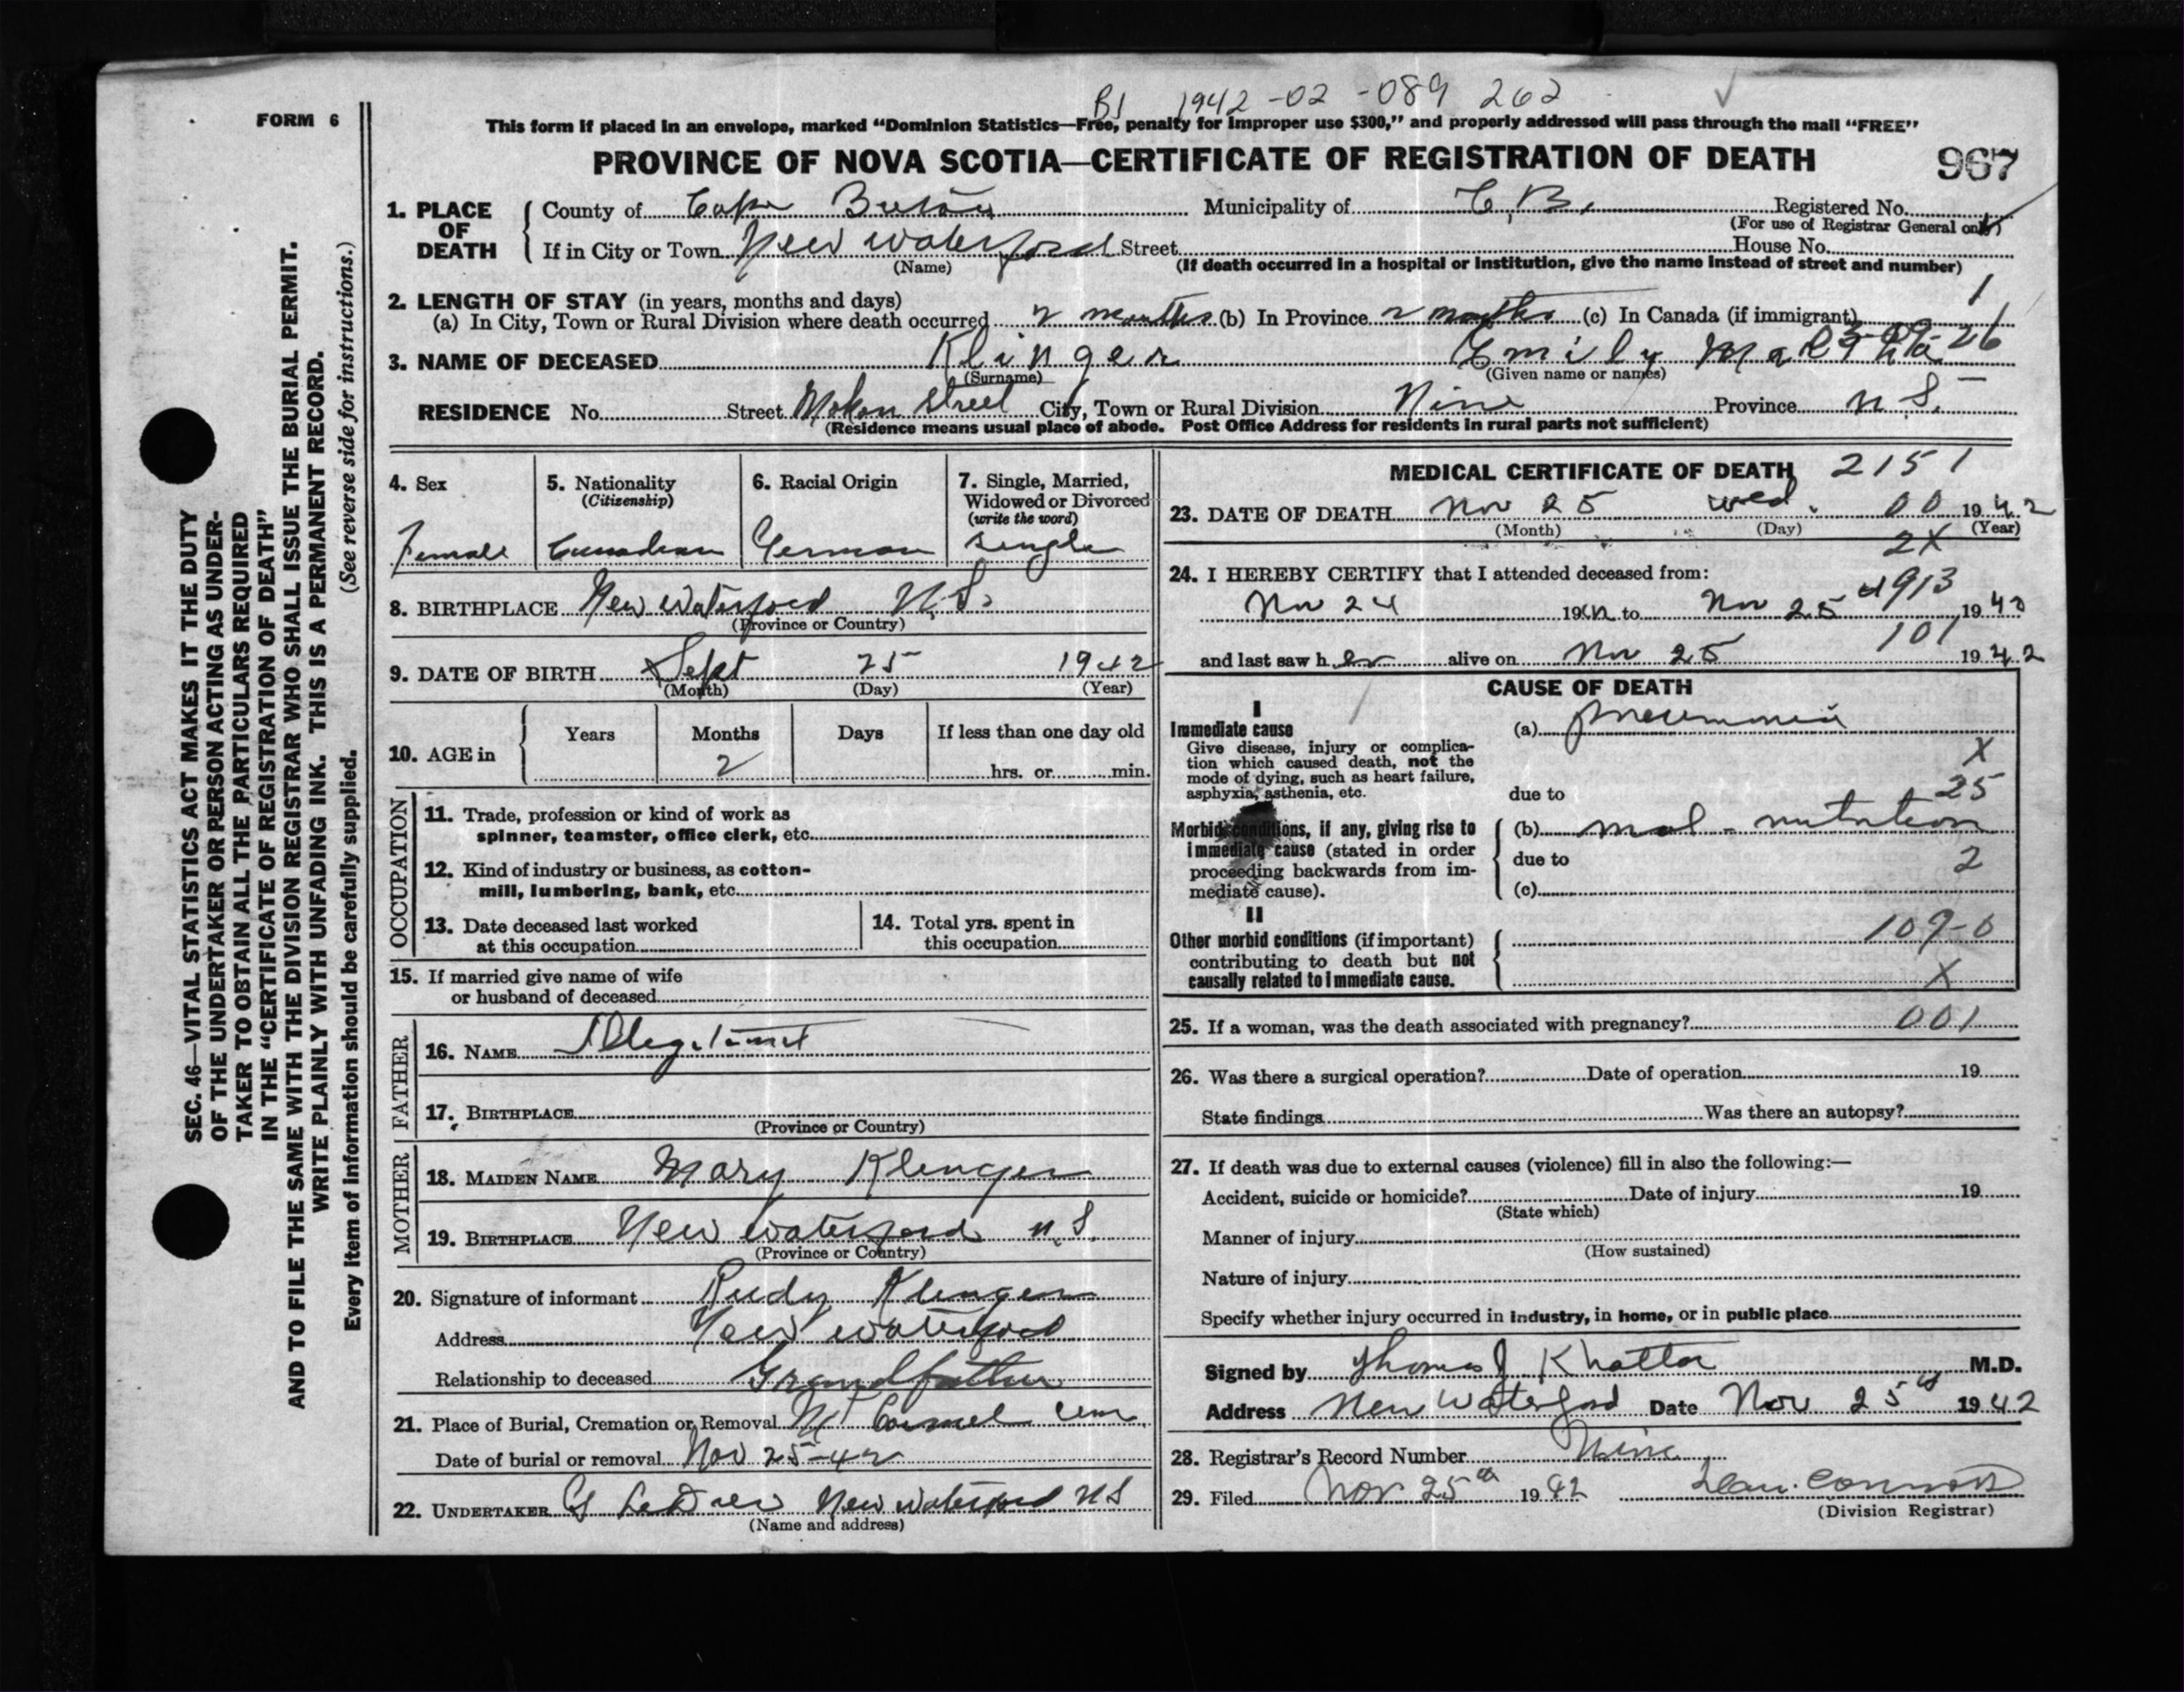 B1 1942-02-089262
FORM 6
This form if placed in an envelope, marked "Dominion Statistics—Free, penalty for improper use $300," and properly addressed will pass through the mail "FREE"
PROVINCE OF NOVA SCOTIA—CERTIFICATE OF REGISTRATION OF DEATH 967
1. PLACE OF DEATH
County of Cape Breton Municipality of C.B. Registered No.
(For use of Registrar General only)
If in City or Town New Waterford Street House No.
(Name) (If death occurred in a hospital or institution, give the name instead of street and number)
2. LENGTH OF STAY (in years, months and days) 1
(a) In City, Town or Rural Division where death occurred 2 months (b) In Province 2 months (c) In Canada (if immigrant)
3. NAME OF DECEASED Klinger Emily
(Surname) (Given name or names)
RESIDENCE No. Street Street City, Town or Rural Division Nine Province N.S.
(Residence means usual place of abode. Post Office Address for residents in rural parts not sufficient)
4. Sex Female
5. Nationality (Citizenship) Canadian
6. Racial Origin German
7. Single, Married, Widowed or Divorced (write the word) Single
8. BIRTHPLACE New Waterford N.S.
(Province or Country)
9. DATE OF BIRTH Sept 25 1942
(Month) (Day) (Year)
10. AGE in Years Months Days If less than one day old
2 hrs. or min.
OCCUPATION
11. Trade, profession or kind of work as spinner, teamster, office clerk, etc.
12. Kind of industry or business, as cotton-mill, lumbering, bank, etc.
13. Date deceased last worked at this occupation
14. Total yrs. spent in this occupation
15. If married give name of wife or husband of deceased
FATHER
16. NAME Illegitimate
17. BIRTHPLACE
(Province or Country)
MOTHER
18. MAIDEN NAME Mary Klinger
19. BIRTHPLACE New Waterford N.S.
(Province or Country)
20. Signature of informant Rudy Klinger
Address New Waterford
Relationship to deceased Grandfather
21. Place of Burial, Cremation or Removal Mt Carmel Cem
Date of burial or removal Nov 25-42
22. UNDERTAKER LeDrew New Waterford NS
(Name and address)
MEDICAL CERTIFICATE OF DEATH 2151
23. DATE OF DEATH Nov 25 Wed. 00 1942
(Month) (Day) (Year)
2X
24. I HEREBY CERTIFY that I attended deceased from:
4913
Nov 24 1942 to Nov 25 1942
101
and last saw her alive on Nov 25 1942
CAUSE OF DEATH
I
Immediate cause
Give disease, injury or complication which caused death, not the mode of dying, such as heart failure, asphyxia, asthenia, etc.
(a) pneumonia
X
due to 25
Morbid conditions, if any, giving rise to immediate cause (stated in order proceeding backwards from immediate cause).
(b) mal-nutrition
due to 2
(c)
II
Other morbid conditions (if important) contributing to death but not causally related to immediate cause.
109-0
X
25. If a woman, was the death associated with pregnancy? 001
26. Was there a surgical operation? Date of operation 19
State findings Was there an autopsy?
27. If death was due to external causes (violence) fill in also the following:—
Accident, suicide or homicide? Date of injury 19
(State which)
Manner of injury
(How sustained)
Nature of injury
Specify whether injury occurred in industry, in home, or in public place
Signed by Thomas J Khattar M.D.
Address New Waterford Date Nov 25th 1942
28. Registrar's Record Number Nine
29. Filed Nov 25th 1942
(Division Registrar)
SEC. 46—VITAL STATISTICS ACT MAKES IT THE DUTY
OF THE UNDERTAKER OR PERSON ACTING AS UNDER-
TAKER TO OBTAIN ALL THE PARTICULARS REQUIRED
IN THE "CERTIFICATE OF REGISTRATION OF DEATH"
AND TO FILE THE SAME WITH THE DIVISION REGISTRAR WHO SHALL ISSUE THE BURIAL PERMIT.
WRITE PLAINLY WITH UNFADING INK. THIS IS A PERMANENT RECORD.
Every item of information should be carefully supplied. (See reverse side for instructions.)